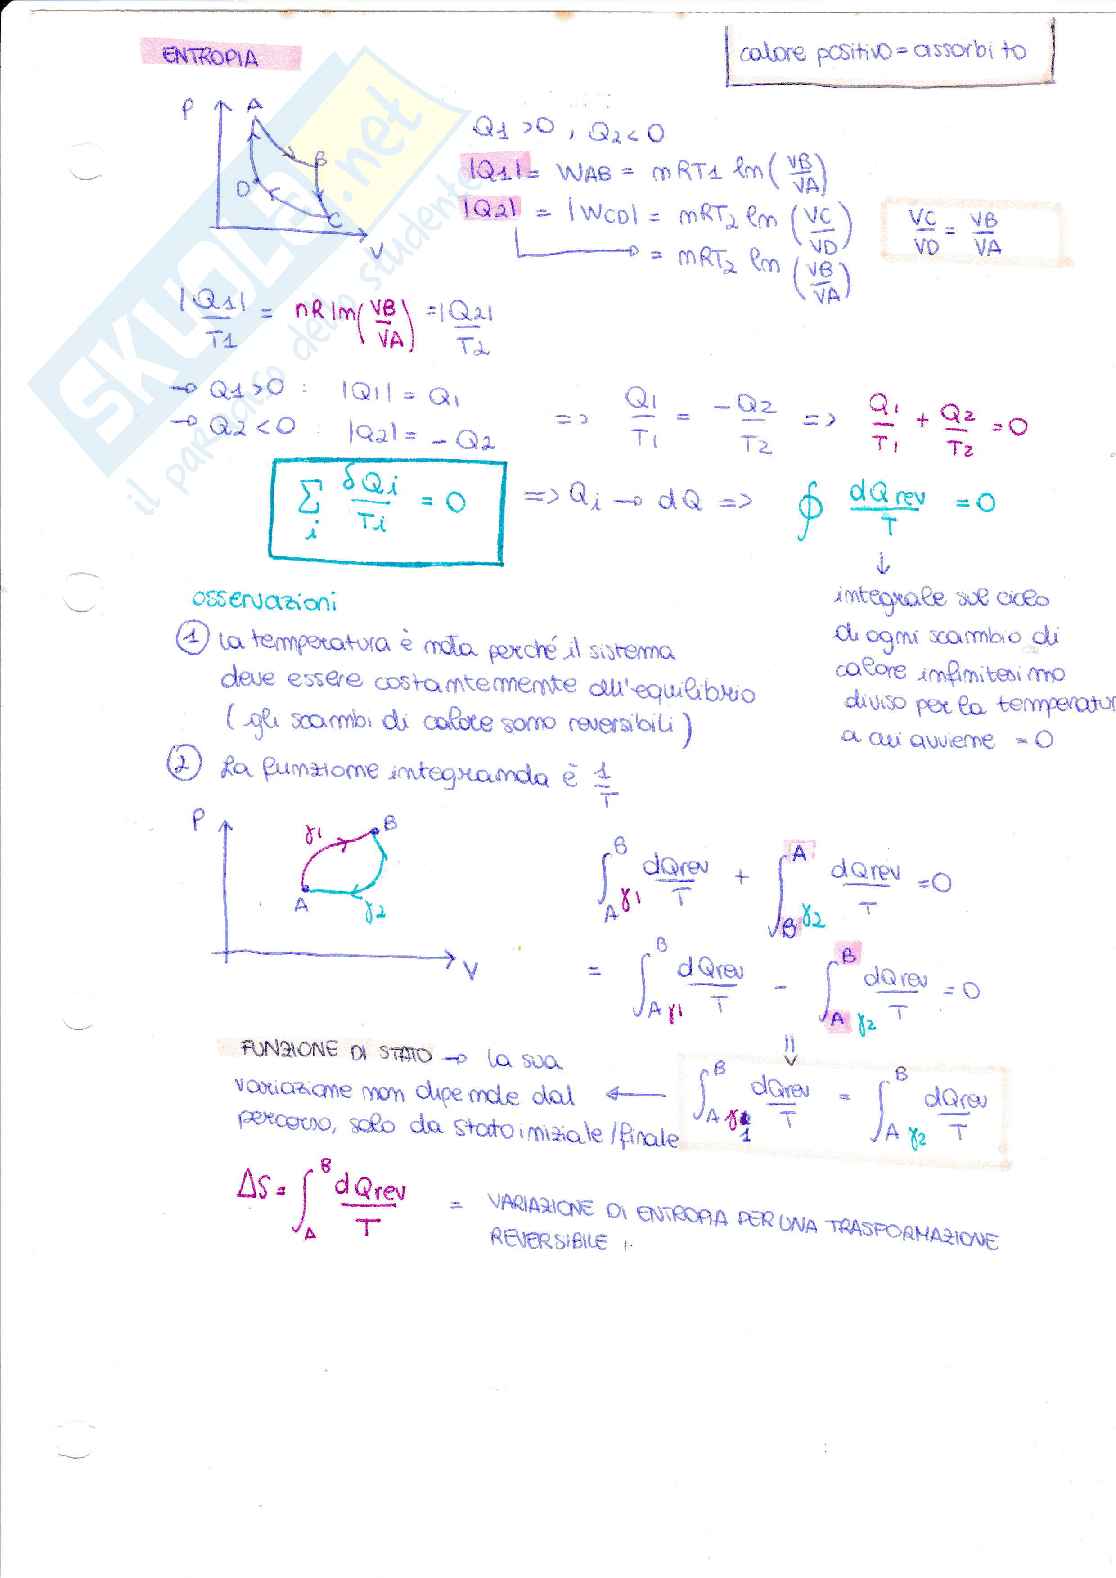 ENTROPIA
calore positivo = assorbito
P
A
B
D
C
V
Q1 >0 , Q2 < 0
|Q1| = WAB = nRT1 ln (VB/VA)
|Q2| = |WCD| = nRT2 ln (VC/VD)
VC/VD = VB/VA
= nRT2 ln (VB/VA)
|Q1|/T1 = nR ln (VB/VA) = |Q2|/T2
→ Q1>0 : |Q1| = Q1
→ Q2<0 : |Q2| = -Q2
=> Q1/T1 = -Q2/T2 => Q1/T1 + Q2/T2 = 0
∑i δQi/Ti = 0 => Qi → dQ => ∮ dQrev/T = 0
↓
integrale sul ciclo
di ogni scambio di
calore infinitesimo
diviso per la temperatur
a cui avviene = 0
osservazioni
1 la temperatura è nota perché il sistema
deve essere costantemente all'equilibrio
(gli scambi di calore sono reversibili)
2 La funzione integranda è 1/T
P
γ1
B
A
γ2
V
∫A γ1 B dQrev/T + ∫B γ2 A dQrev/T = 0
= ∫A γ1 B dQrev/T - ∫A γ2 B dQrev/T = 0
FUNZIONE DI STATO → la sua
variazione non dipende dal
percorso, solo da stato iniziale/finale
∫A γ1 B dQrev/T = ∫A γ2 B dQrev/T
ΔS = ∫A B dQrev/T = VARIAZIONE DI ENTROPIA PER UNA TRASFORMAZIONE
REVERSIBILE
SKUOLA.net
il paradiso dello studente